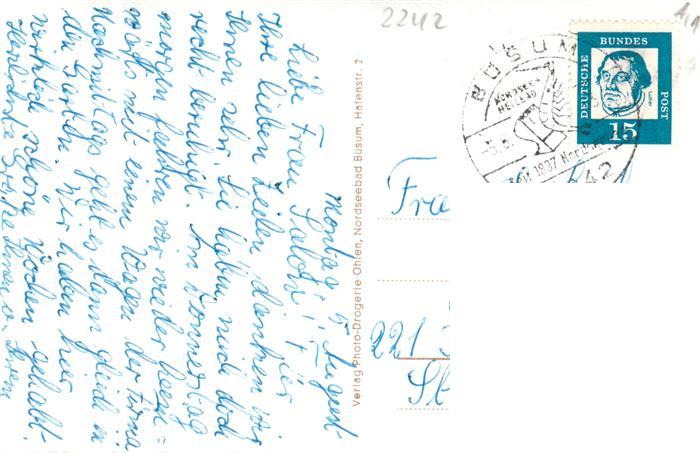 2242
Montag, 5. August
Liebe Frau
Für
Ihre lieben Zeilen danken wir
Ihnen sehr. Sie haben mich doch
recht beruhigt. Am Donnerstag
morgen fahren wir wieder heim =
wärts mit einem Wagen der Firma
Nachmittags geht es dann gleich in
den Garten. Wir haben hier
wirklich schöne Wochen gehabt.
Herzliche Grüße Ihnen u. Ihrem
Verlag Photo-Drogerie Ohlen, Nordseebad Büsum, Hafenstr. 2
BÜSUM
NORDSEE-
HEILBAD
-5.8.
seit 1837 Nordsee
242
DEUTSCHE
BUNDES
POST
Luther
15
Fra
221